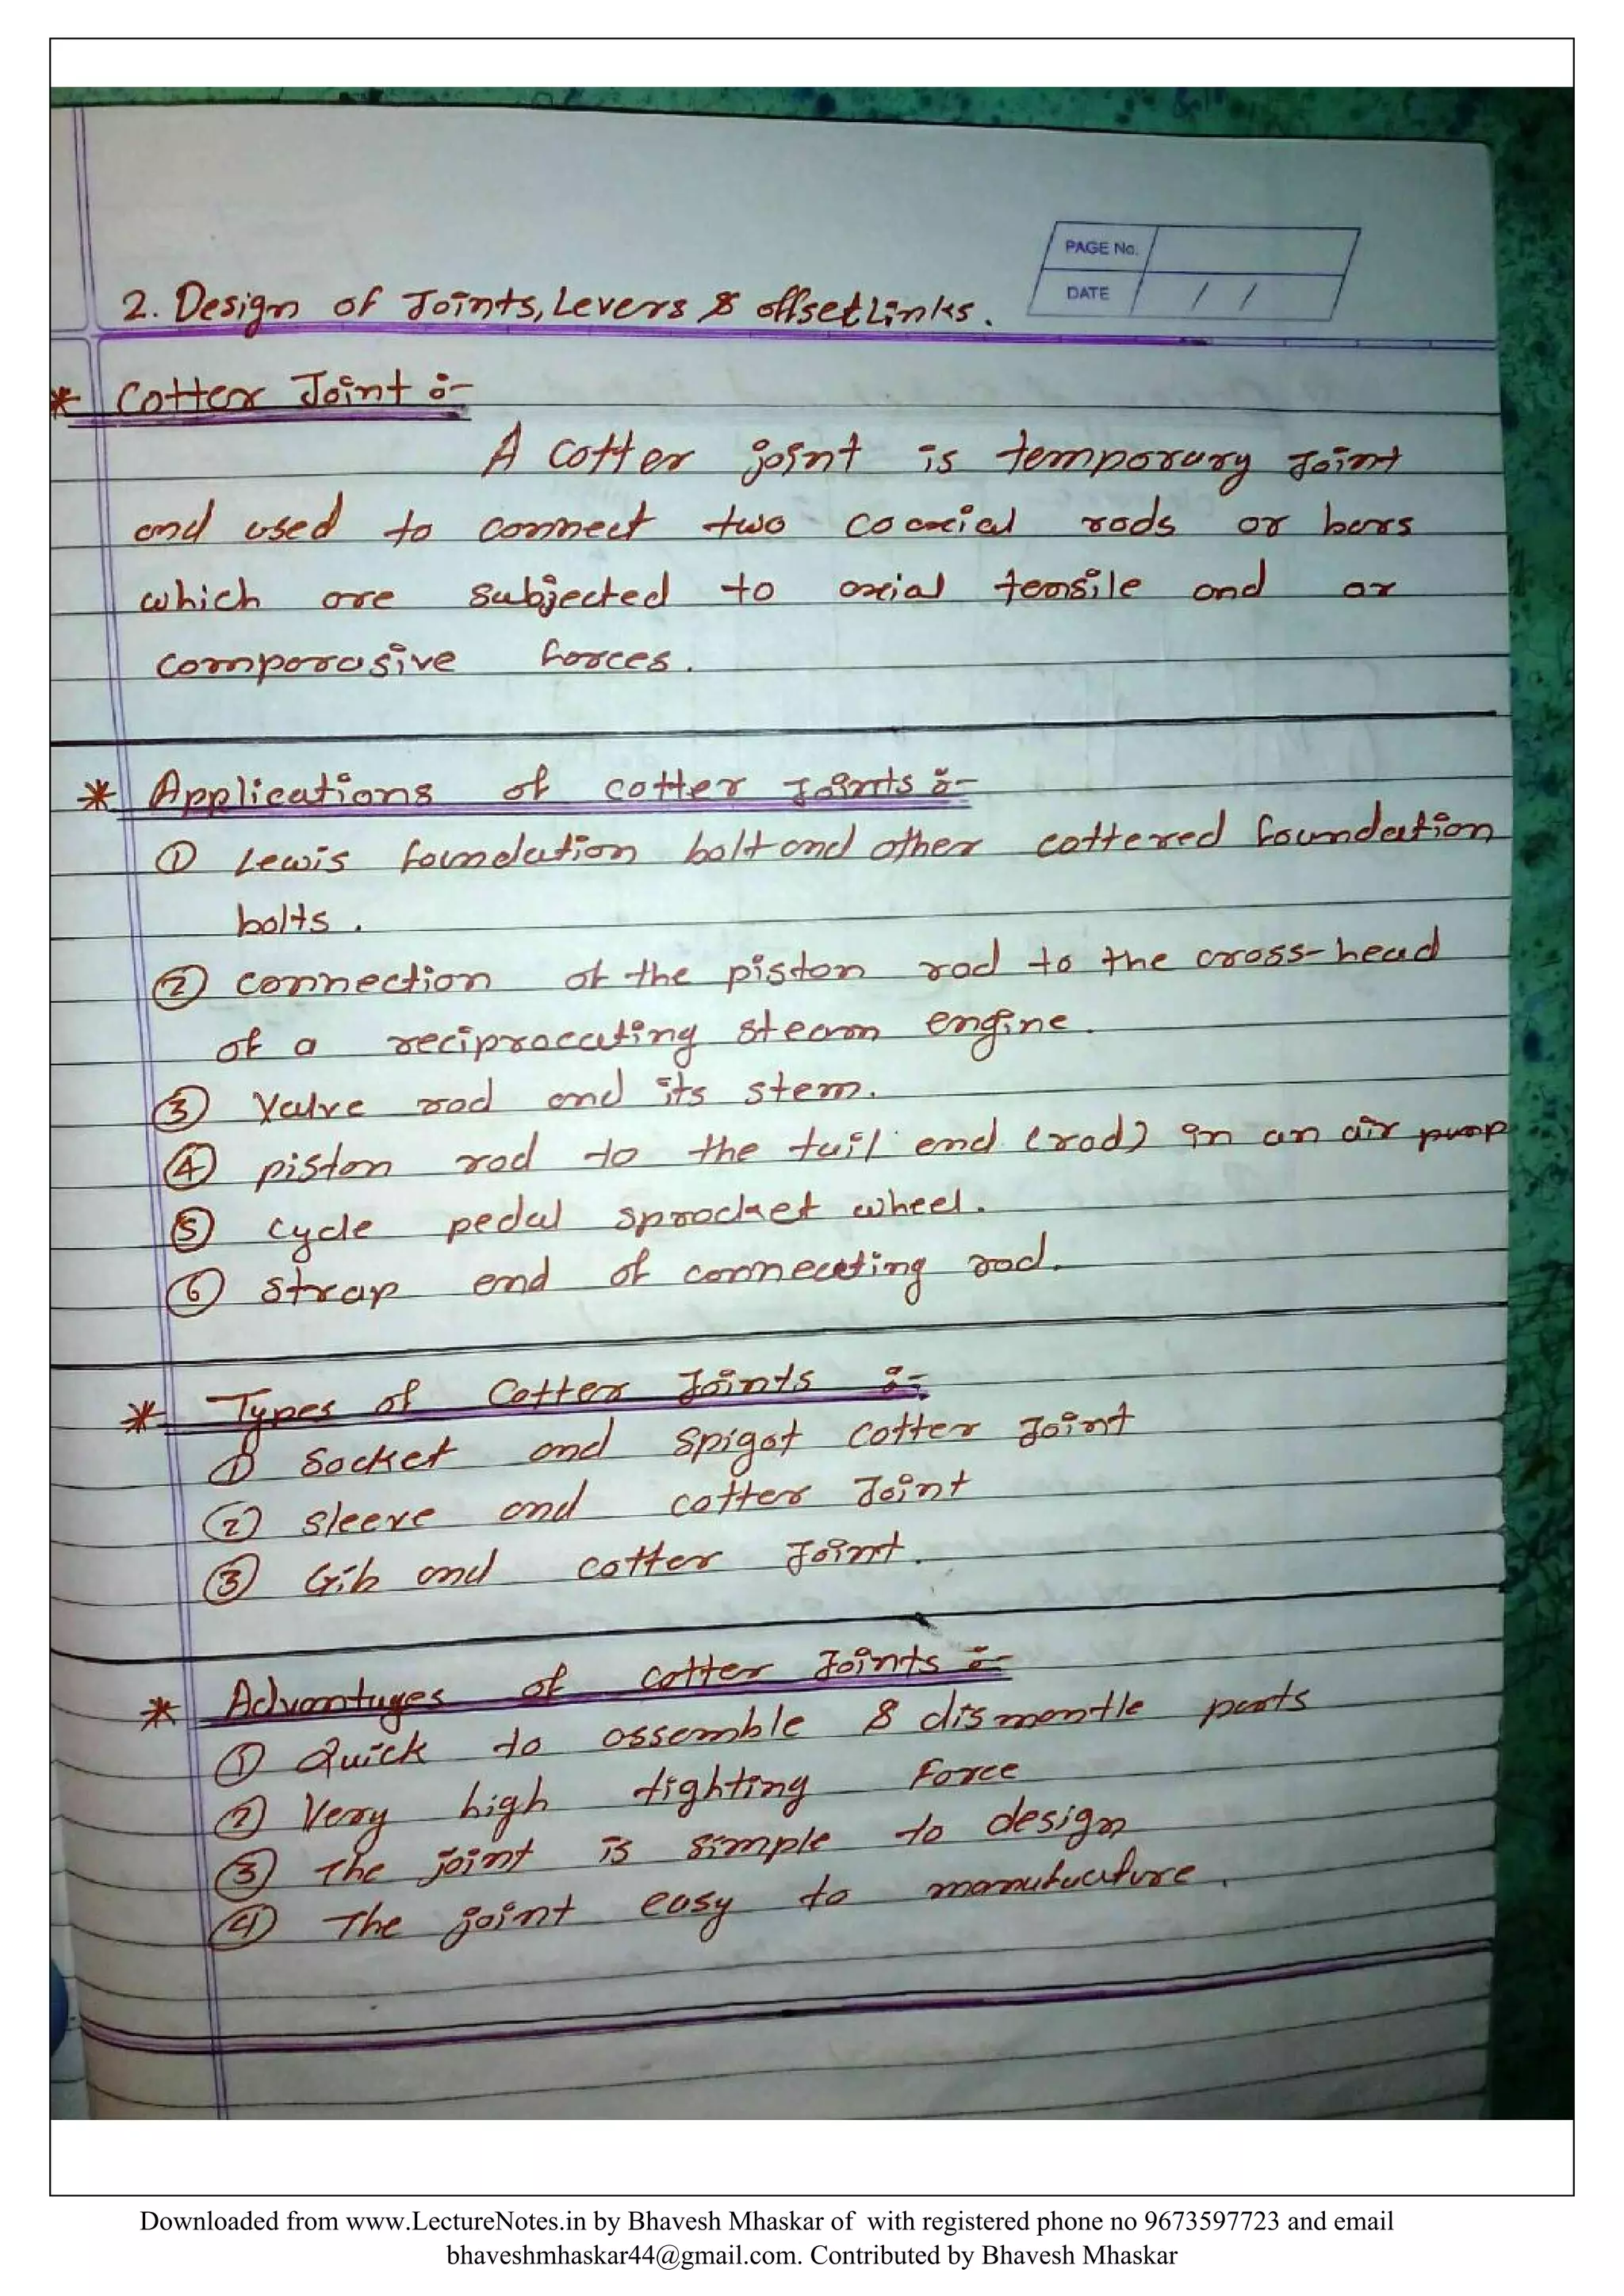 PAGE No.
DATE / /
2. Design of Joints, Levers & offset Links.
* Cotter Joint :-
A cotter joint is temporary Joint
and used to connect two coaxial rods or bars
which are subjected to axial tensile and or
comporasive forces.
* Applications of cotter Joints :-
① Lewis foundation bolt and other cottered foundation
bolts.
② connection of the piston rod to the cross-head
of a reciprocating steam engine.
③ Valve rod and its stem.
④ piston rod to the tail end (rod) in an air pump
⑤ cycle pedal sprocket wheel.
⑥ strap end of connecting rod.
* Types of Cotter Joints :-
① Socket and spigot cotter Joint
② sleeve and cotter Joint
③ Gib and cotter Joint.
* Advantages of cotter Joints :-
① Quick to assemble & dismantle parts
② Very high tighting force
③ The joint is simple to design
④ The joint easy to manufacture.
Downloaded from www.LectureNotes.in by Bhavesh Mhaskar of with registered phone no 9673597723 and email
bhaveshmhaskar44@gmail.com. Contributed by Bhavesh Mhaskar